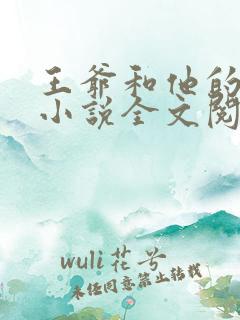 王爷和他的
小说全文阅
wuli花兮
未经同意禁止转载